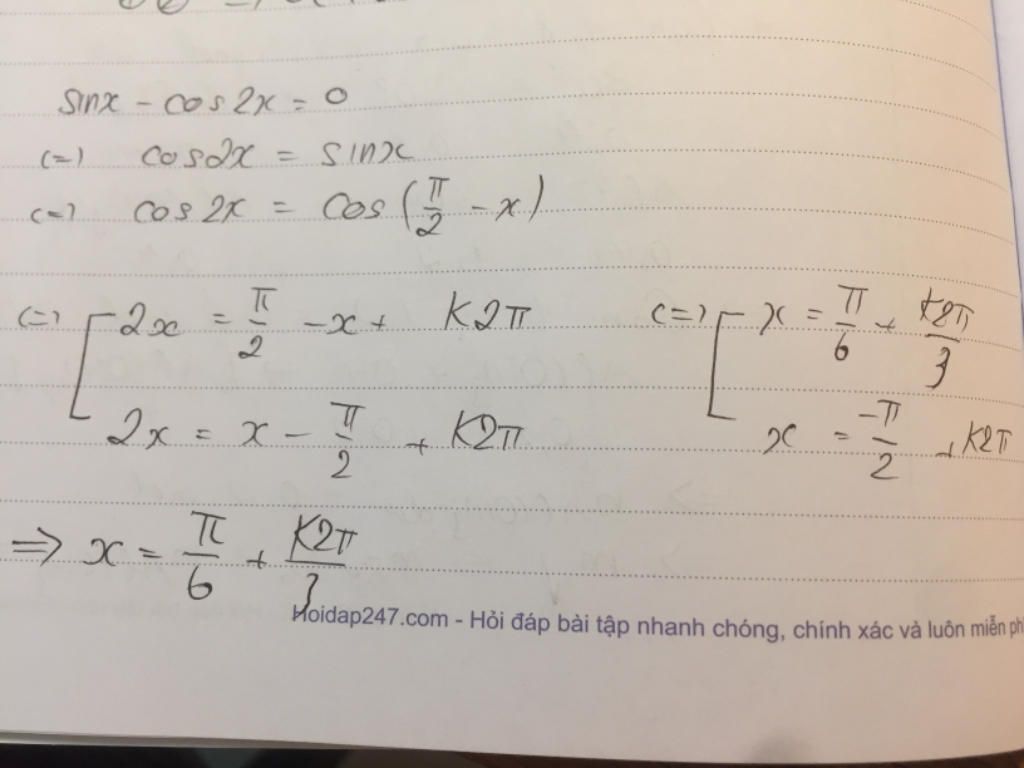 sinx - cos2x = 0
(=) cos2x = sinx
(=) cos2x = cos(π/2 - x)
(=) [ 2x = π/2 - x + K2π (=) [ x = π/6 + K2π/3
2x = x - π/2 + K2π x = -π/2 + K2π
=> x = π/6 + K2π/3
Hoidap247.com - Hỏi đáp bài tập nhanh chóng, chính xác và luôn miễn ph